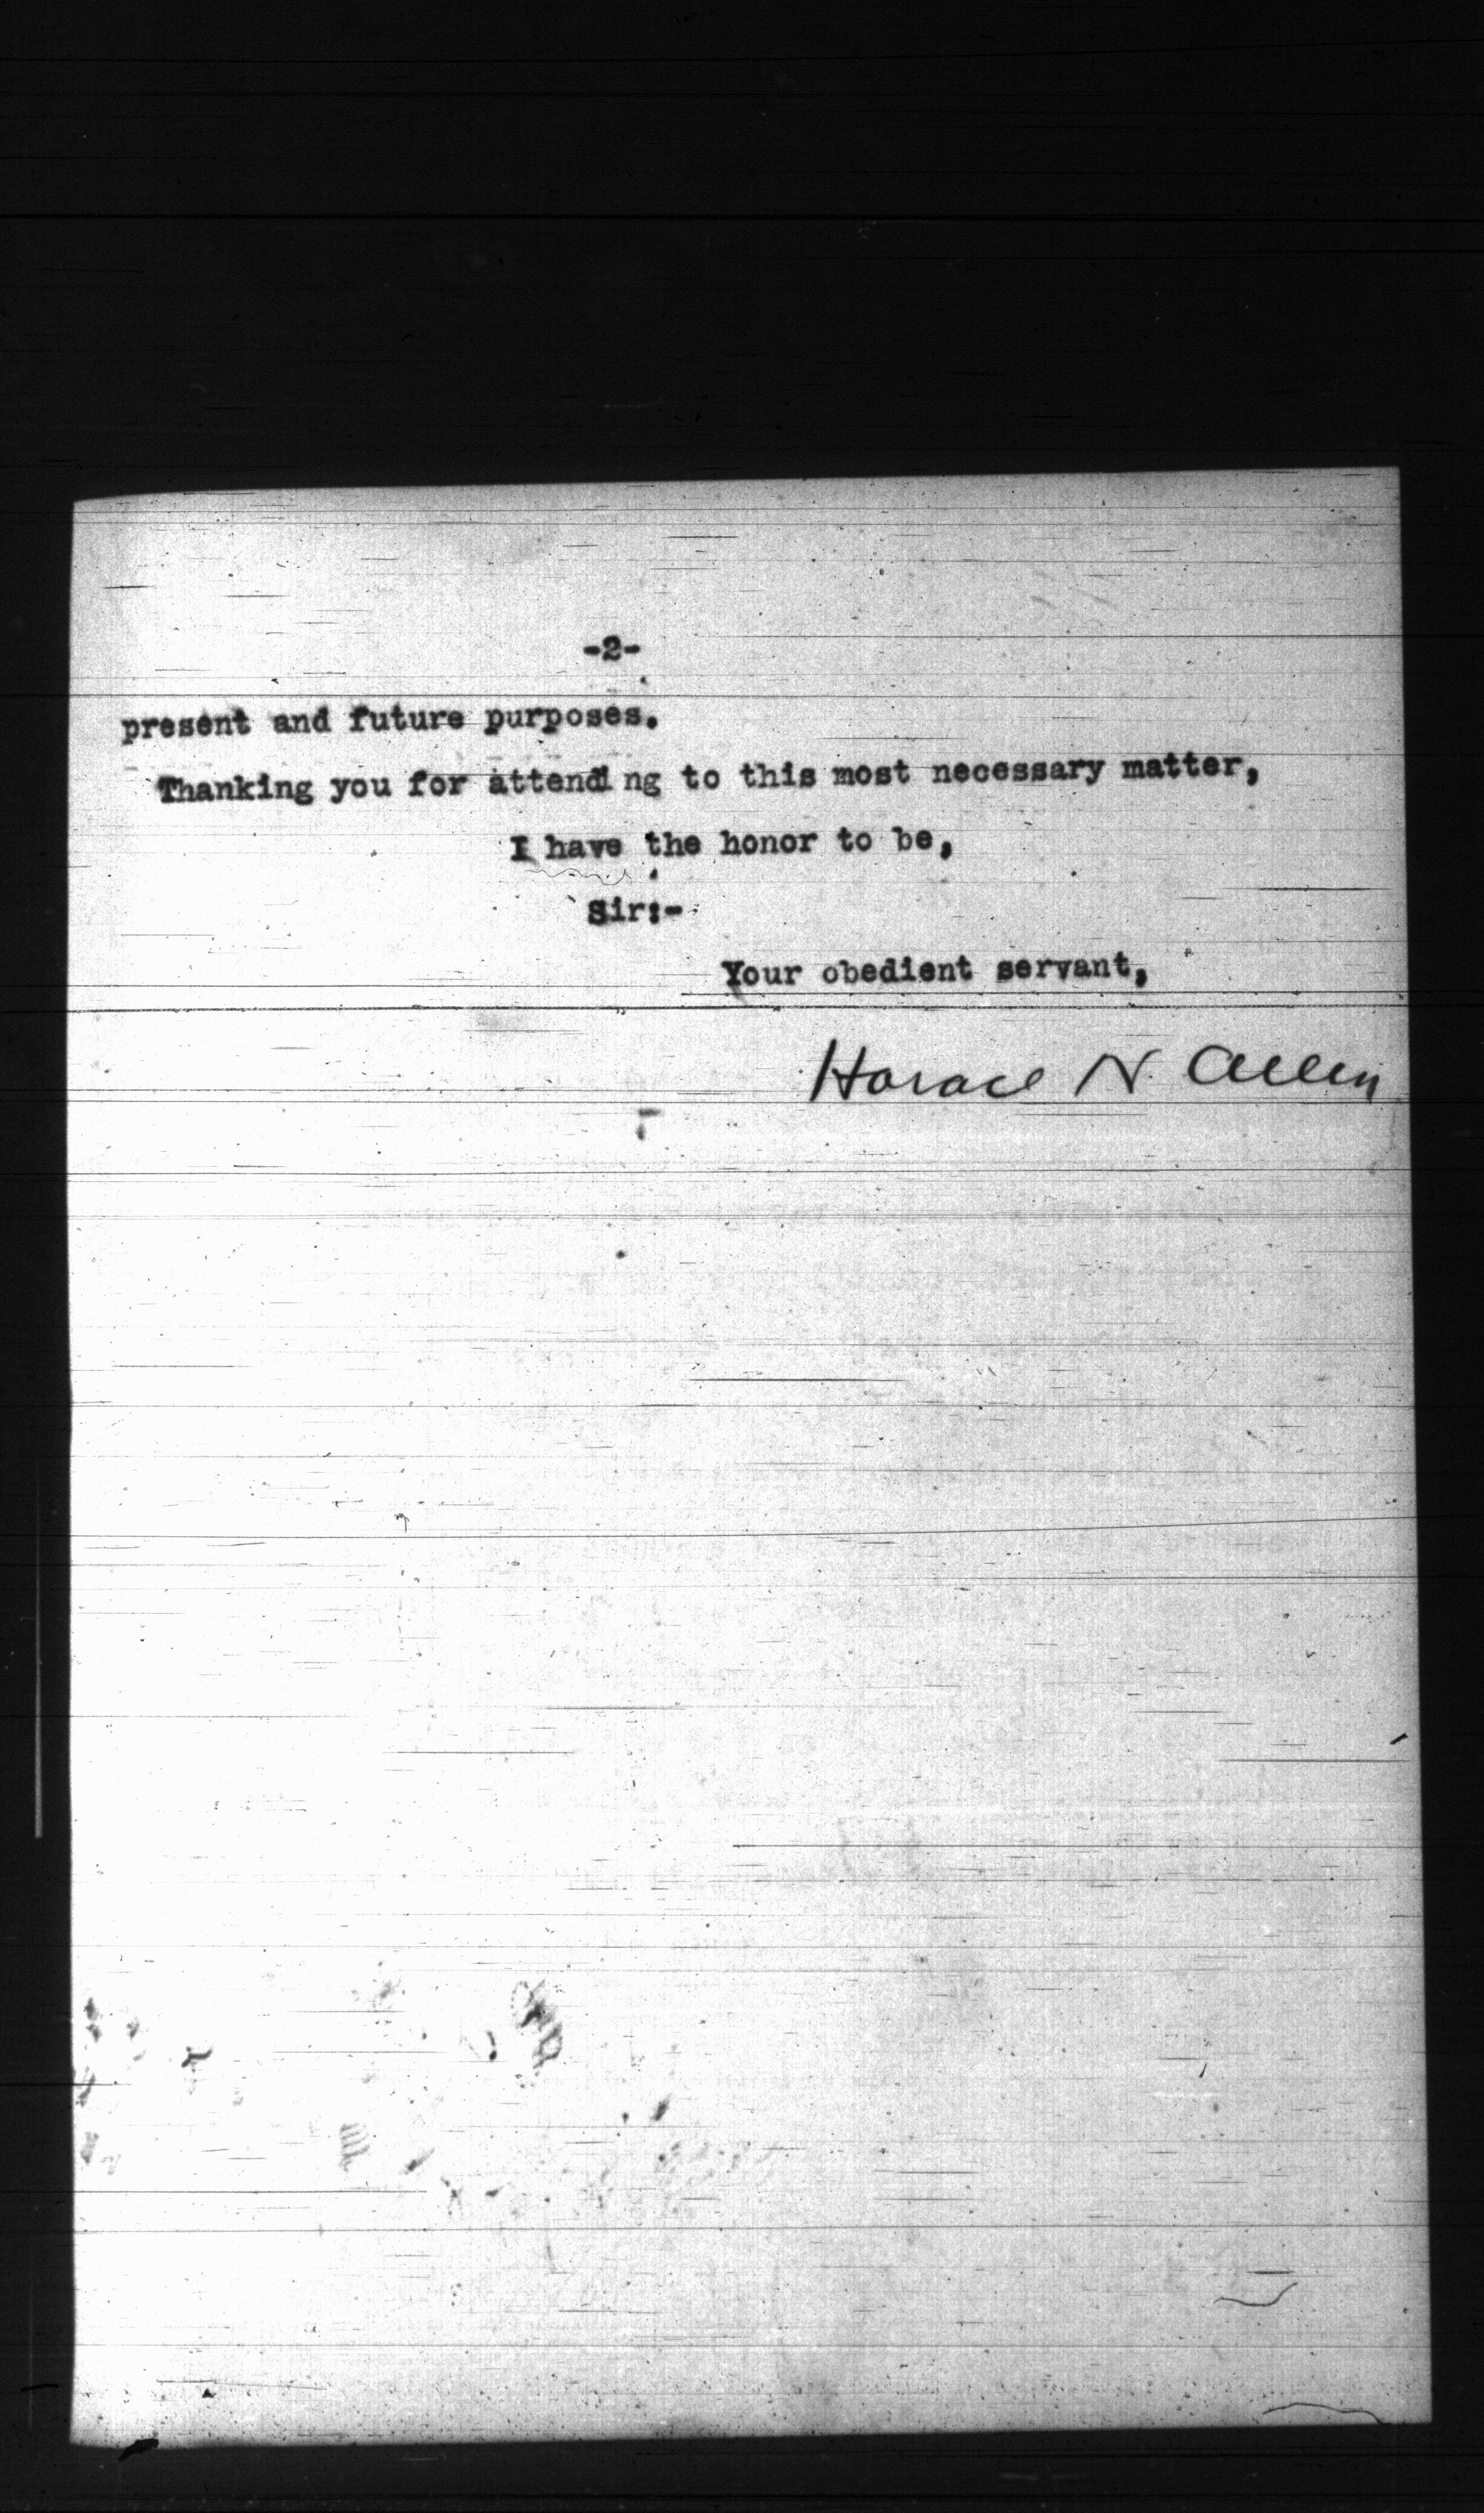 -2-
present and future purposes.
Thanking you for attending to this most necessary matter,
I have the honor to be,
Sir:-
Your obedient servant,
Horace N. Allen